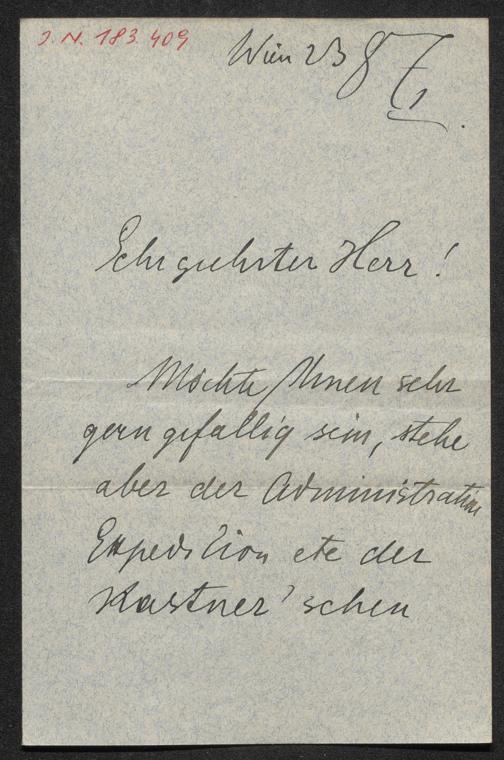 I. N. 183.409
Wien 23 8
Sehr geehrter Herr!
Möchte Ihnen sehr
gern gefällig sein, stehe
aber der Administration
Expedition etc der
Kastner'schen